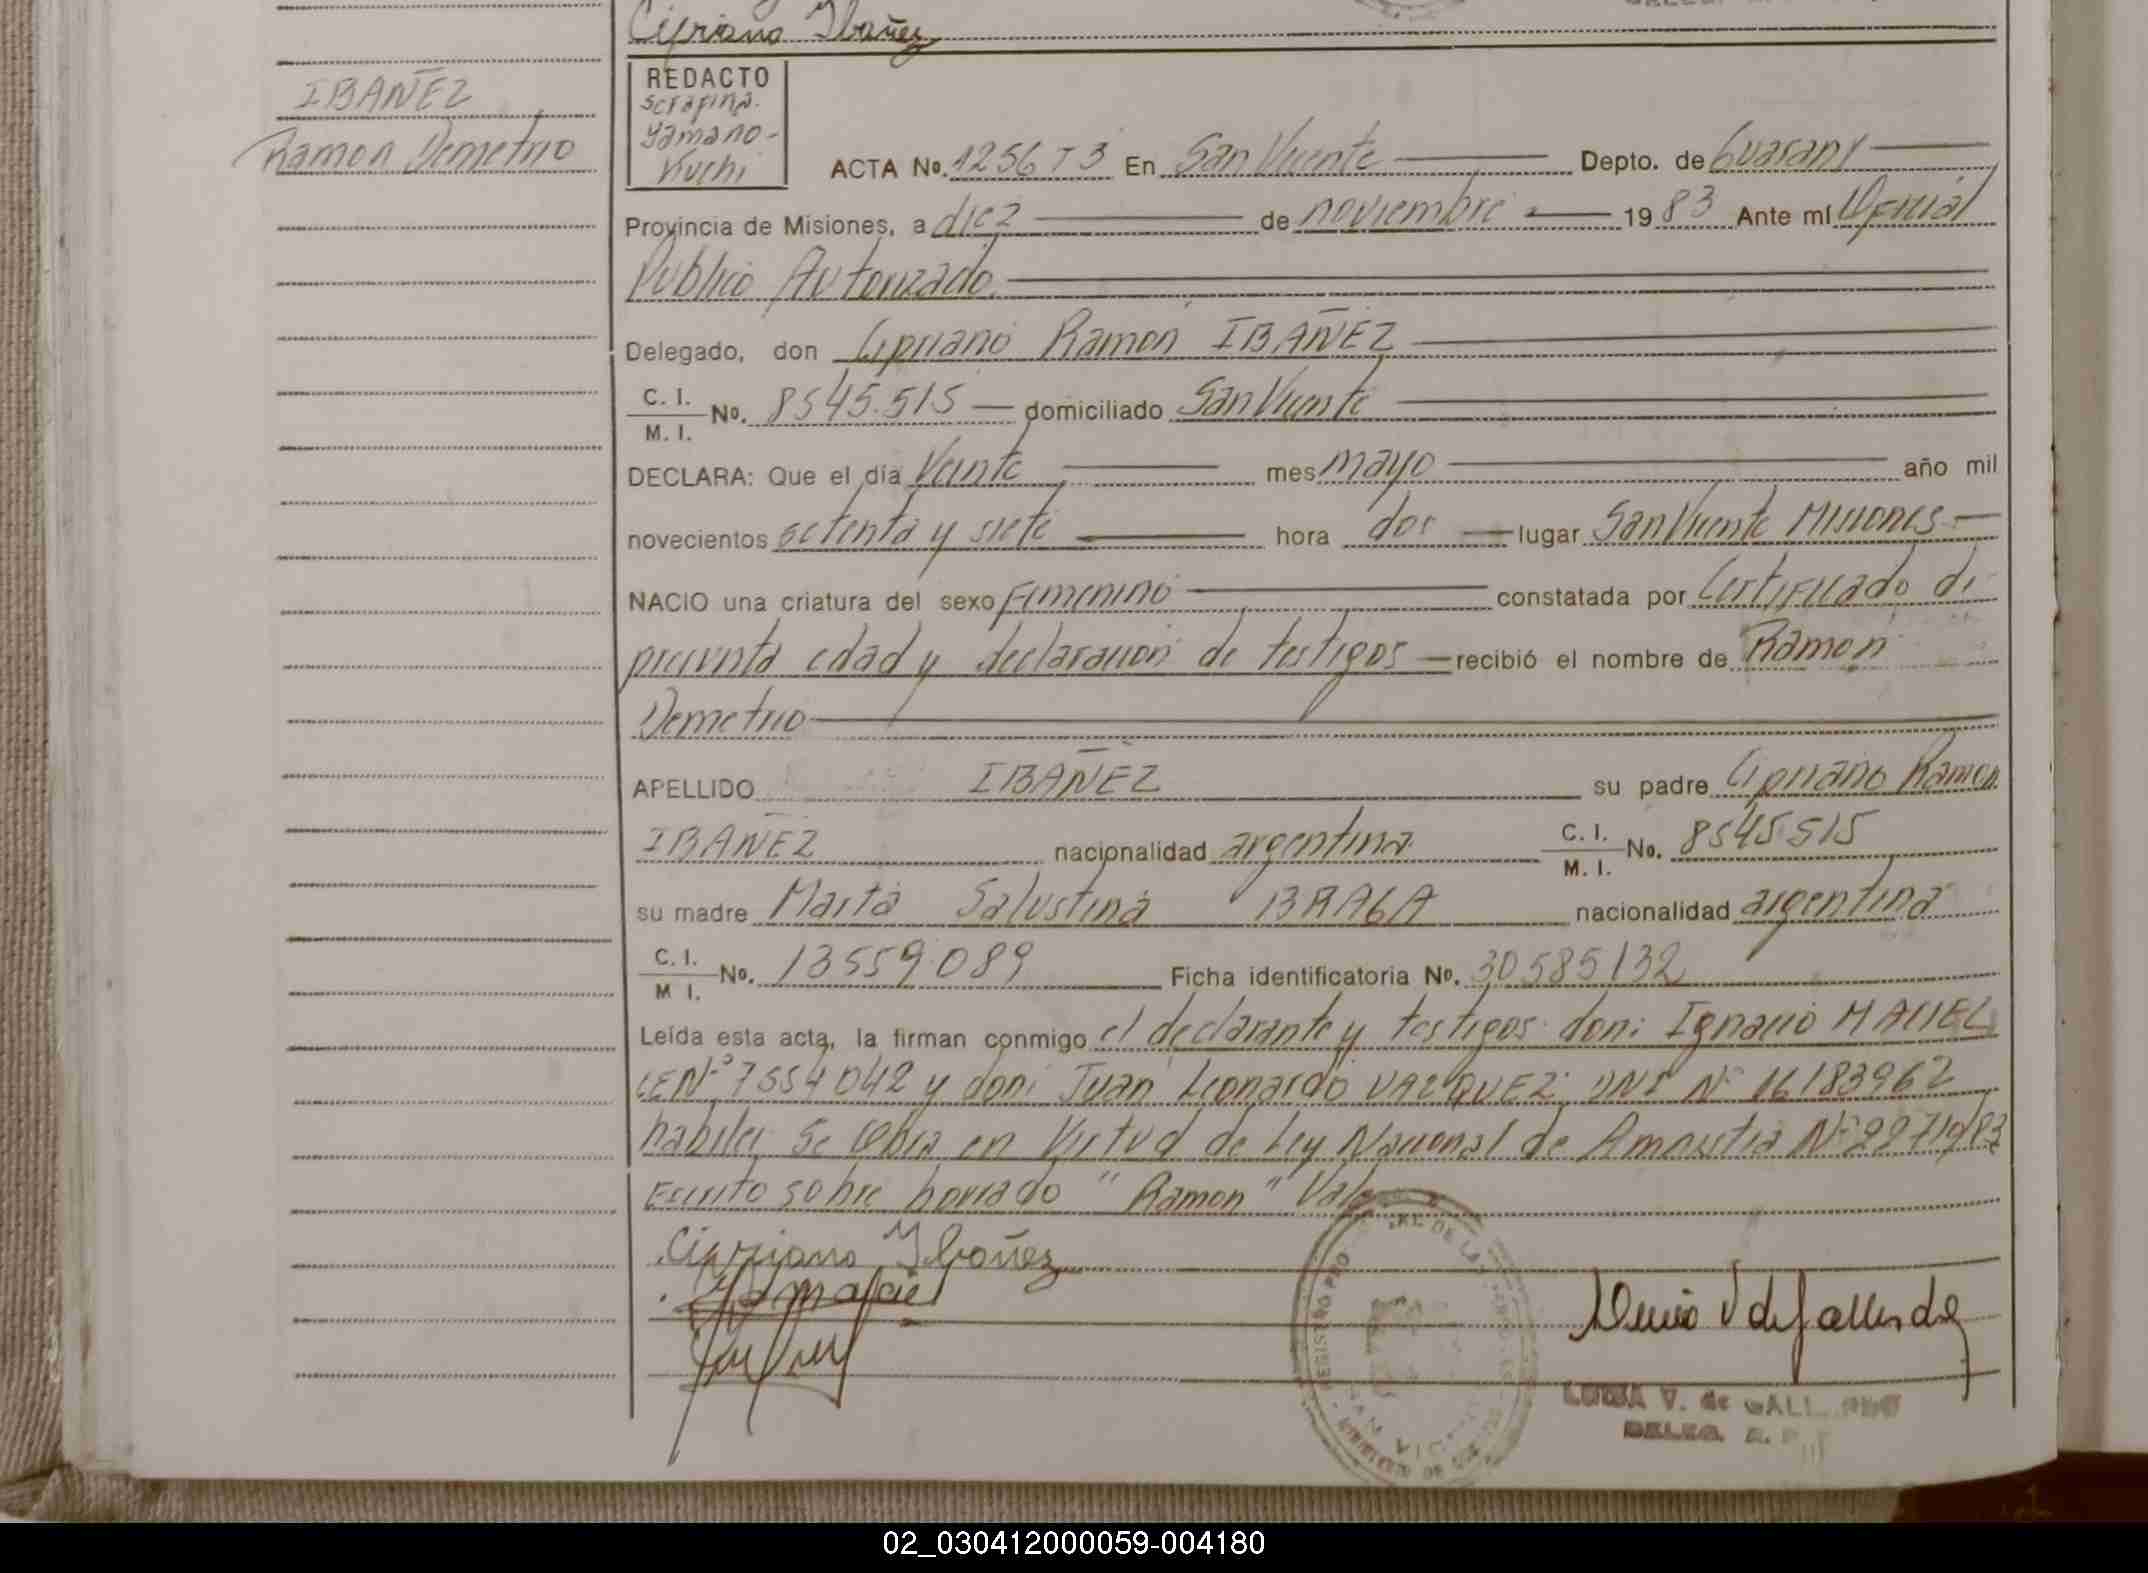 Cipriano Ibañez
IBAÑEZ
Ramon Demetrio
REDACTO
Serafina
Yamano-
Kuchi
ACTA No. 1256 T3 En San Vicente Depto. de Guarany
Provincia de Misiones, a diez de noviembre 1983 Ante mí Oficial
Publico Autorizado
Delegado, don Cipriano Ramon IBAÑEZ
C. I. M. I. No. 8545.515 domiciliado San Vicente
DECLARA: Que el día Veinte mes mayo año mil
novecientos setenta y siete hora dos lugar San Vicente Misiones
NACIO una criatura del sexo Femenino constatada por Certificado de
presunta edad y declaracion de testigos recibió el nombre de Ramon
Demetrio
APELLIDO IBAÑEZ su padre Cipriano Ramon
IBAÑEZ nacionalidad argentina C. I. M. I. No. 8545515
su madre Marta Salustina BRAGA nacionalidad argentina
C. I. M I. No. 13559.089 Ficha identificatoria No. 30585132
Leída esta acta, la firman conmigo el declarante y testigos don: Ignacio MACIEL
LE Nº 7554042 y don: Juan Leonardo VAZQUEZ DNI Nº 16183962
habiles Se labra en Virtud de Ley Nacional de Amnistia Nº 22710/83
Escrito sobre borrado "Ramon" Vale
Cipriano Ibañez
REGISTRO PRO DE LAS
V. de GALL
DELEG. R. P
02_030412000059-004180